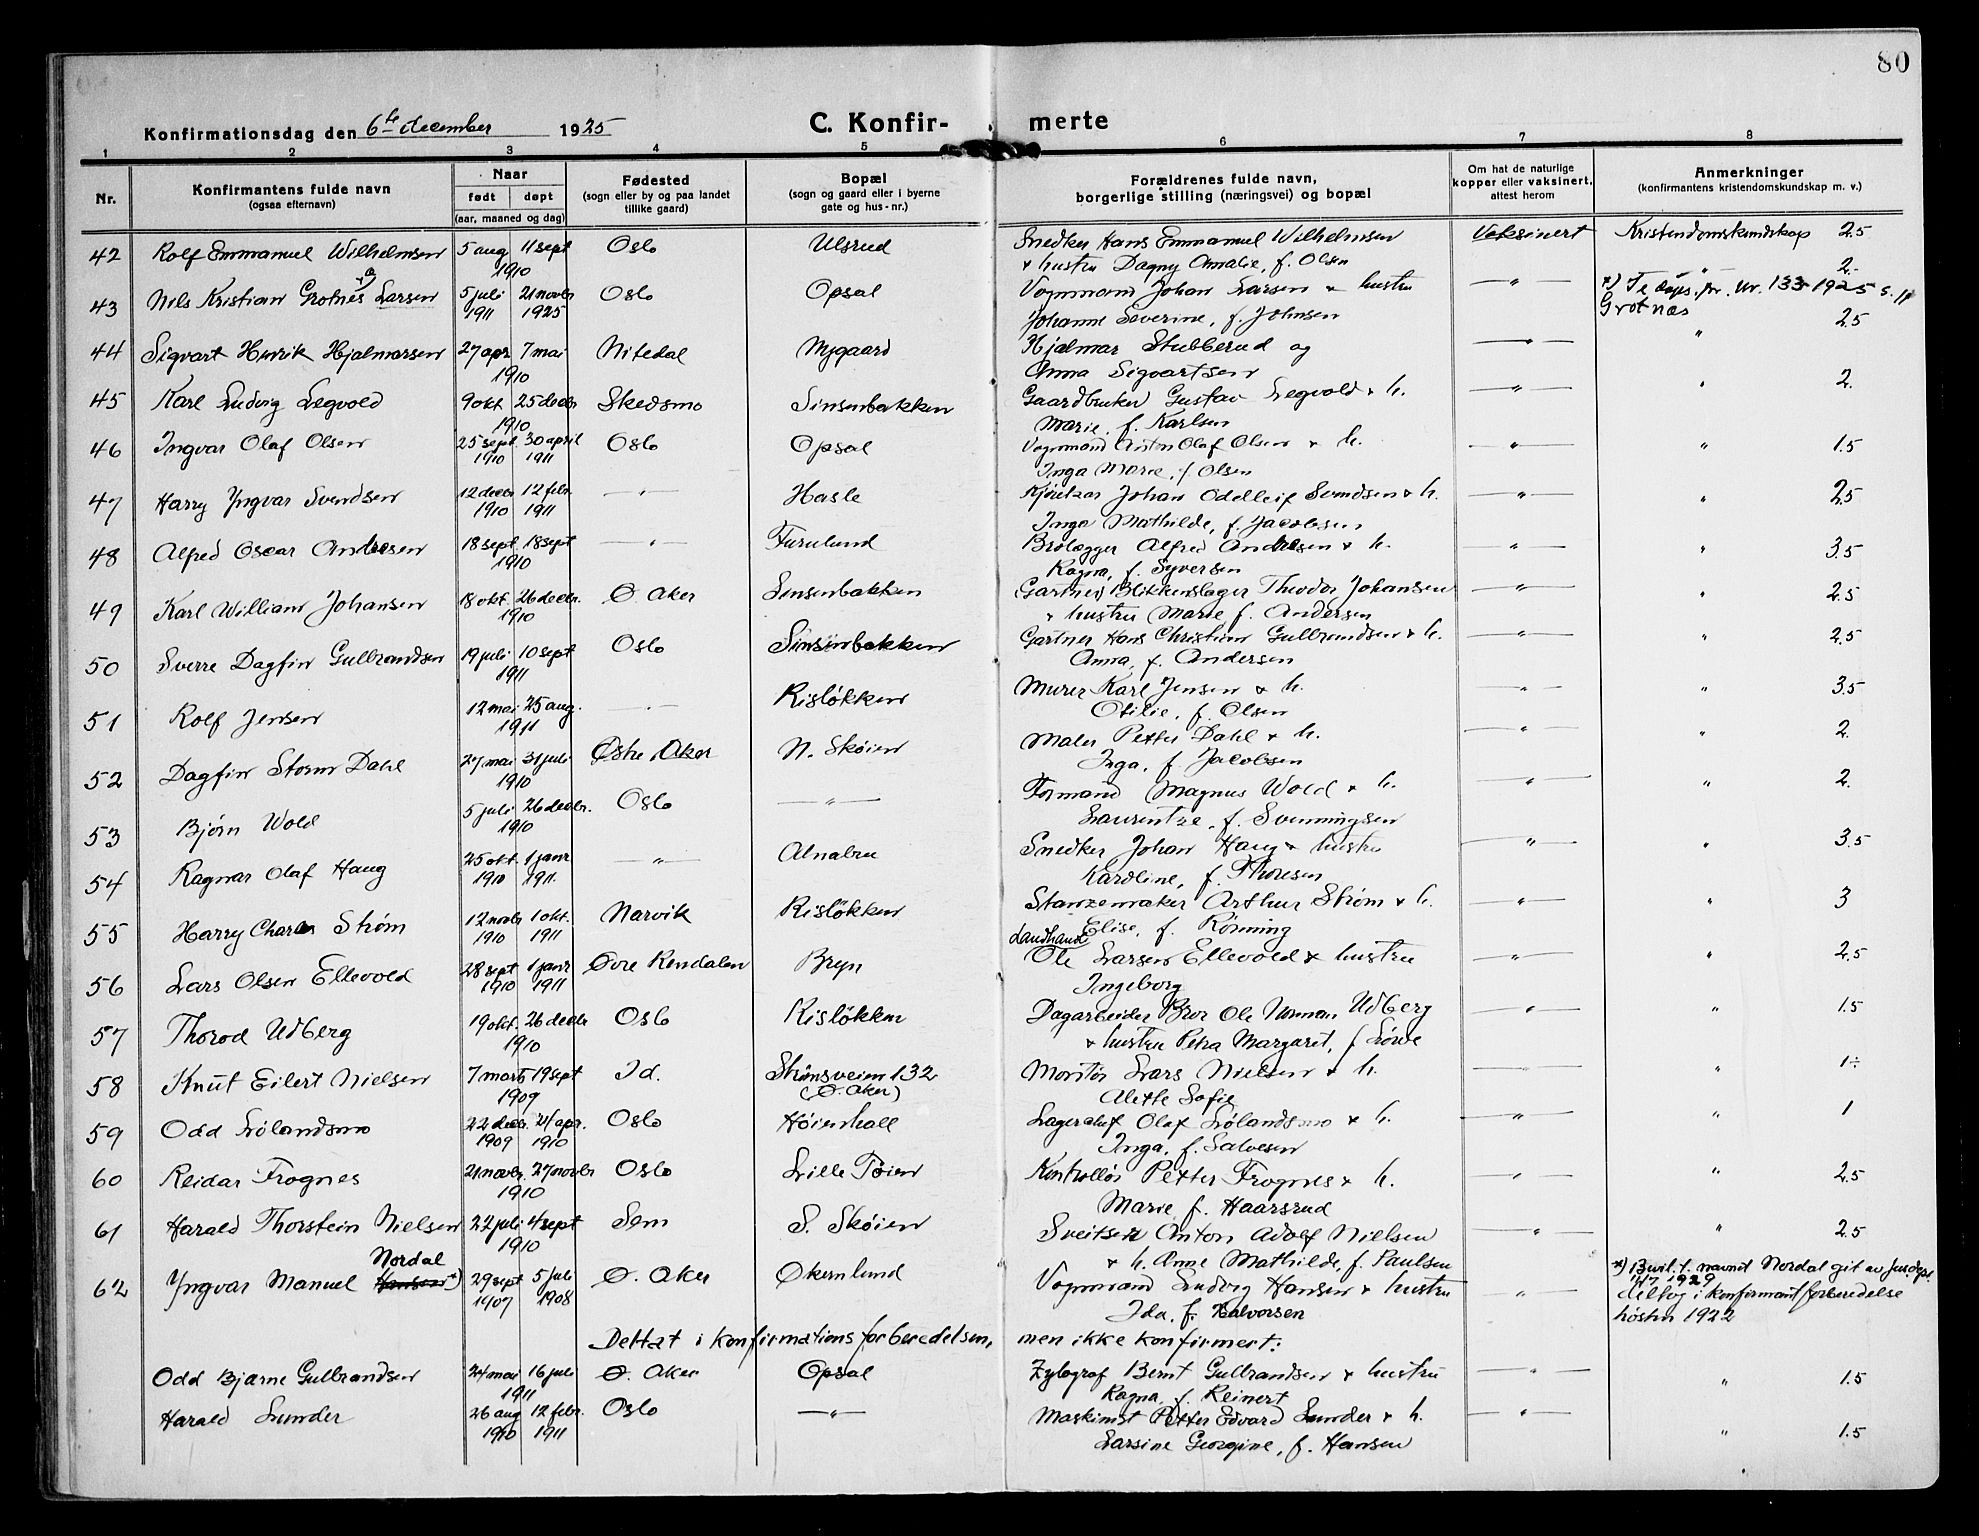 80
Konfirmationsdag den 6te december 1925 C. Konfir- merte
1 2 3 4 5 6 7 8
Nr. Konfirmantens fulde navn (ogsaa efternavn) Naar født døpt (aar, maaned og dag) Fødested (sogn eller by og paa landet tillike gaard) Bopæl (sogn og gaard eller i byerne gate og hus-nr.) Forældrenes fulde navn, borgerlige stilling (næringsvei) og bopæl Om hat de naturlige kopper eller vaksinert, attest herom Anmerkninger (konfirmantens kristendomskundskap m. v.)
42 Rolf Emmanuel Wilhelmsen 5 aug 11 sept Oslo Ulsrud Snedker Hans Emmanuel Wilhelmsen Vaksinert Kristendomskundskap 2.5
1910 & hustru Dagny Amalie, f. Olsen
43 Nils Kristian Grotnes Larsen 5 juli 21 novbr Oslo Opsal Vognmand Johan Larsen & hustru — " — " 2.-
1911 1925 Johanne Severine, f. Johnsen
Nr. 133 1925 s. 11
Grotnæs
44 Sigvart Henrik Hjalmarsen 27 apr 7 mai Nitedal Nygaard Hjalmar Stubberud og — " — " 2.5
1910 Anna Sigvartsen
45 Karl Ludvig Legvold 9 okt 25 decbr Skedsmo Sinsenbakken Gaardbruker Gustav Legvold & h. — " — " 2.
1910 Marie, f. Karlsen
46 Ingvar Olaf Olsen 25 sept 30 april Oslo Opsal Vognmand Anton Olaf Olsen & h. — " — " 1.5
1910 1911 Inga Marie, f. Olsen
47 Harry Yngvar Svendsen 12 decbr 12 febr. — " — Hasle Johan Odelleif Svendsen & h. — " — " 2.5
1910 1911 Inga Mathilde, f. Jacobsen
48 Alfred Oscar Andresen 18 sept 18 sept — " — Furulund Brolægger Alfred Andresen & h. — " — " 3.5
1910 Ragna, f. Syversen
49 Karl William Johansen 18 okt. 26 decbr. Ø. Aker Sinsenbakken Gartner Blikkenslager Theodor Johansen — " — " 2.5
1910 & hustru Marie f. Andersen
50 Sverre Dagfin Gulbrandsen 19 juli 10 sept Oslo Sinsenbakken Gartner Hans Christian Gulbrandsen & h. — " — " 2.5
1911 Anna, f. Andersen
51 Rolf Jensen 12 mai 25 aug. — " — Risløkken Murer Karl Jensen & h. — " — " 3.5
1911 Otilie, f. Olsen
52 Dagfin Storm Dahl 27 mai 31 juli Østre Aker N. Skøien Maler Petter Dahl & h. — " — " 2.
1910 Inga, f. Jacobsen
53 Bjørn Wold 5 juli 26 decbr. Oslo — " — Formand Magnus Wold & h. — " — " 2.
1910 Laurentze, f. Svenningsen
54 Ragnar Olaf Haug 25 okt. 1 janr — " — Alnabru Snedker Johan Haug & hustru — " — " 3.5
1910 1911. Karoline, f. Thoresen
55 Harry Charles Strøm 12 novbr 1 okt. Narvik Risløkken Stanzemaker Arthur Strøm & h. — " — " 3
1910 1911 Elise, f. Rönning
56 Lars Olsen Ellevold 28 sept 1 janr Øvre Rendalen Bryn Landhandl. Ole Larsen Ellevold & hustru — " — " 2.5
1910 1911 Ingeborg
57 Thorod Udberg 19 okt. 26 decbr Oslo Risløkken Dagarbeider Bror Ole Norman Udberg — " — " 1.5
1910 & hustru Petra Margaret, f.
58 Knut Eilert Nielsen 7 marts 19 sept Id. Strømsveien 132 Montør Lars Nielsen & h. — " — " 1÷
1909 (Ø. Aker) Alette Sofie
59 Odd Lølandsmo 22 decbr. 21 apr. Oslo Høienhall Lagerchef Olaf Lølandsmo & h. — " — " 1
1909 1910 Inga, f. Salvesen
60 Reidar Frognes 21 novbr. 27 novbr Oslo Lille Tøien Kontrollør Petter Frognes & h. — " — " 2.5
1910 Marie f. Haarsrud
61 Harald Thorstein Nielsen 22 juli 4 sept Sem S. Skøien Sveitser Anton Adolf Nielsen — " — " 2.5
1910 & h. Anne Mathilde, f. Paulsen
Nordal
62 Yngvar Manuel Hansen *) 29 sept 5 juli Ø. Aker Økernlund Vognmand Ludvig Hansen & hustru — " — *) Bevil. t. navnet Nordal git av Jusdept
1907 1908 Ida, f. Halvorsen 1929
deltog i konfirmantforberedelse
høsten 1922
Deltat i konfirmationsforberedelsen, men ikke konfirmert:
Odd Bjarne Gulbrandsen 24 mai 16 juli Ø. Aker Opsal Xylograf Bernt Gulbrandsen & hustru — " — " 1.5
1911 Ragna, f. Reinert
Harald Lunder 26 aug 12 febr. Oslo — " — Maskinist Petter Edvard Lunder & h. — " — " 1.5
1910 1911 Larsine Georgine, f. Hansen